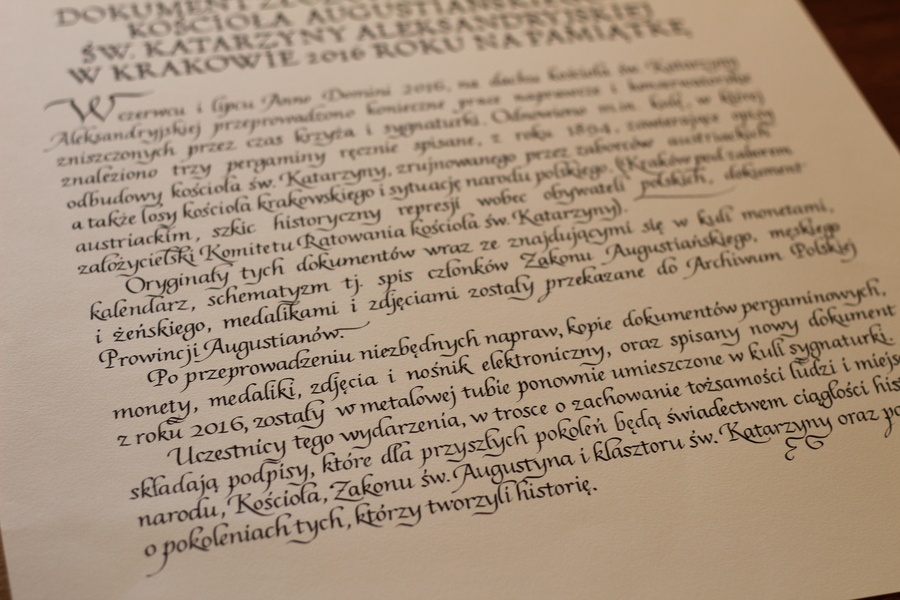 DOKUMENT
KOŚCIOŁA AUGUSTIAŃSKIEGO
ŚW. KATARZYNY ALEKSANDRYJSKIEJ
W KRAKOWIE 2016 ROKU NA PAMIĄTKĘ
W czerwcu i lipcu Anno Domini 2016, na dachu kościoła św. Katarzyny
Aleksandryjskiej przeprowadzono konieczne prace naprawcze i konserwatorskie
zniszczonych przez czas krzyża i sygnaturki. Odnowiono m.in. kulę, w której
znaleziono trzy pergaminy ręcznie spisane, z roku 1894, zawierające opisy
odbudowy kościoła św. Katarzyny, zrujnowanego przez zaborców austriackich
a także losy kościoła krakowskiego i sytuację narodu polskiego. (Kraków pod zaborem
austriackim, szkic historyczny represji wobec obywateli polskich, dokument
założycielski Komitetu Ratowania kościoła św. Katarzyny).
Oryginały tych dokumentów wraz ze znajdującymi się w kuli monetami,
kalendarz, schematyzm tj. spis członków Zakonu Augustiańskiego, męskiego
i żeńskiego, medalikami i zdjęciami zostały przekazane do Archiwum Polskiej
Prowincji Augustianów.
Po przeprowadzeniu niezbędnych napraw, kopie dokumentów pergaminowych,
monety, medaliki, zdjęcia i nośnik elektroniczny, oraz spisany nowy dokument
z roku 2016, zostały w metalowej tubie ponownie umieszczone w kuli sygnaturki.
Uczestnicy tego wydarzenia, w trosce o zachowanie tożsamości ludzi i miejsc
składają podpisy, które dla przyszłych pokoleń będą świadectwem ciągłości his
narodu, Kościoła, Zakonu św. Augustyna i klasztoru św. Katarzyny oraz po
o pokoleniach tych, którzy tworzyli historię.